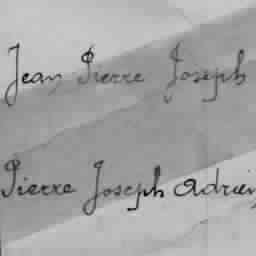 Jean Pierre Joseph
Pierre Joseph Adrien